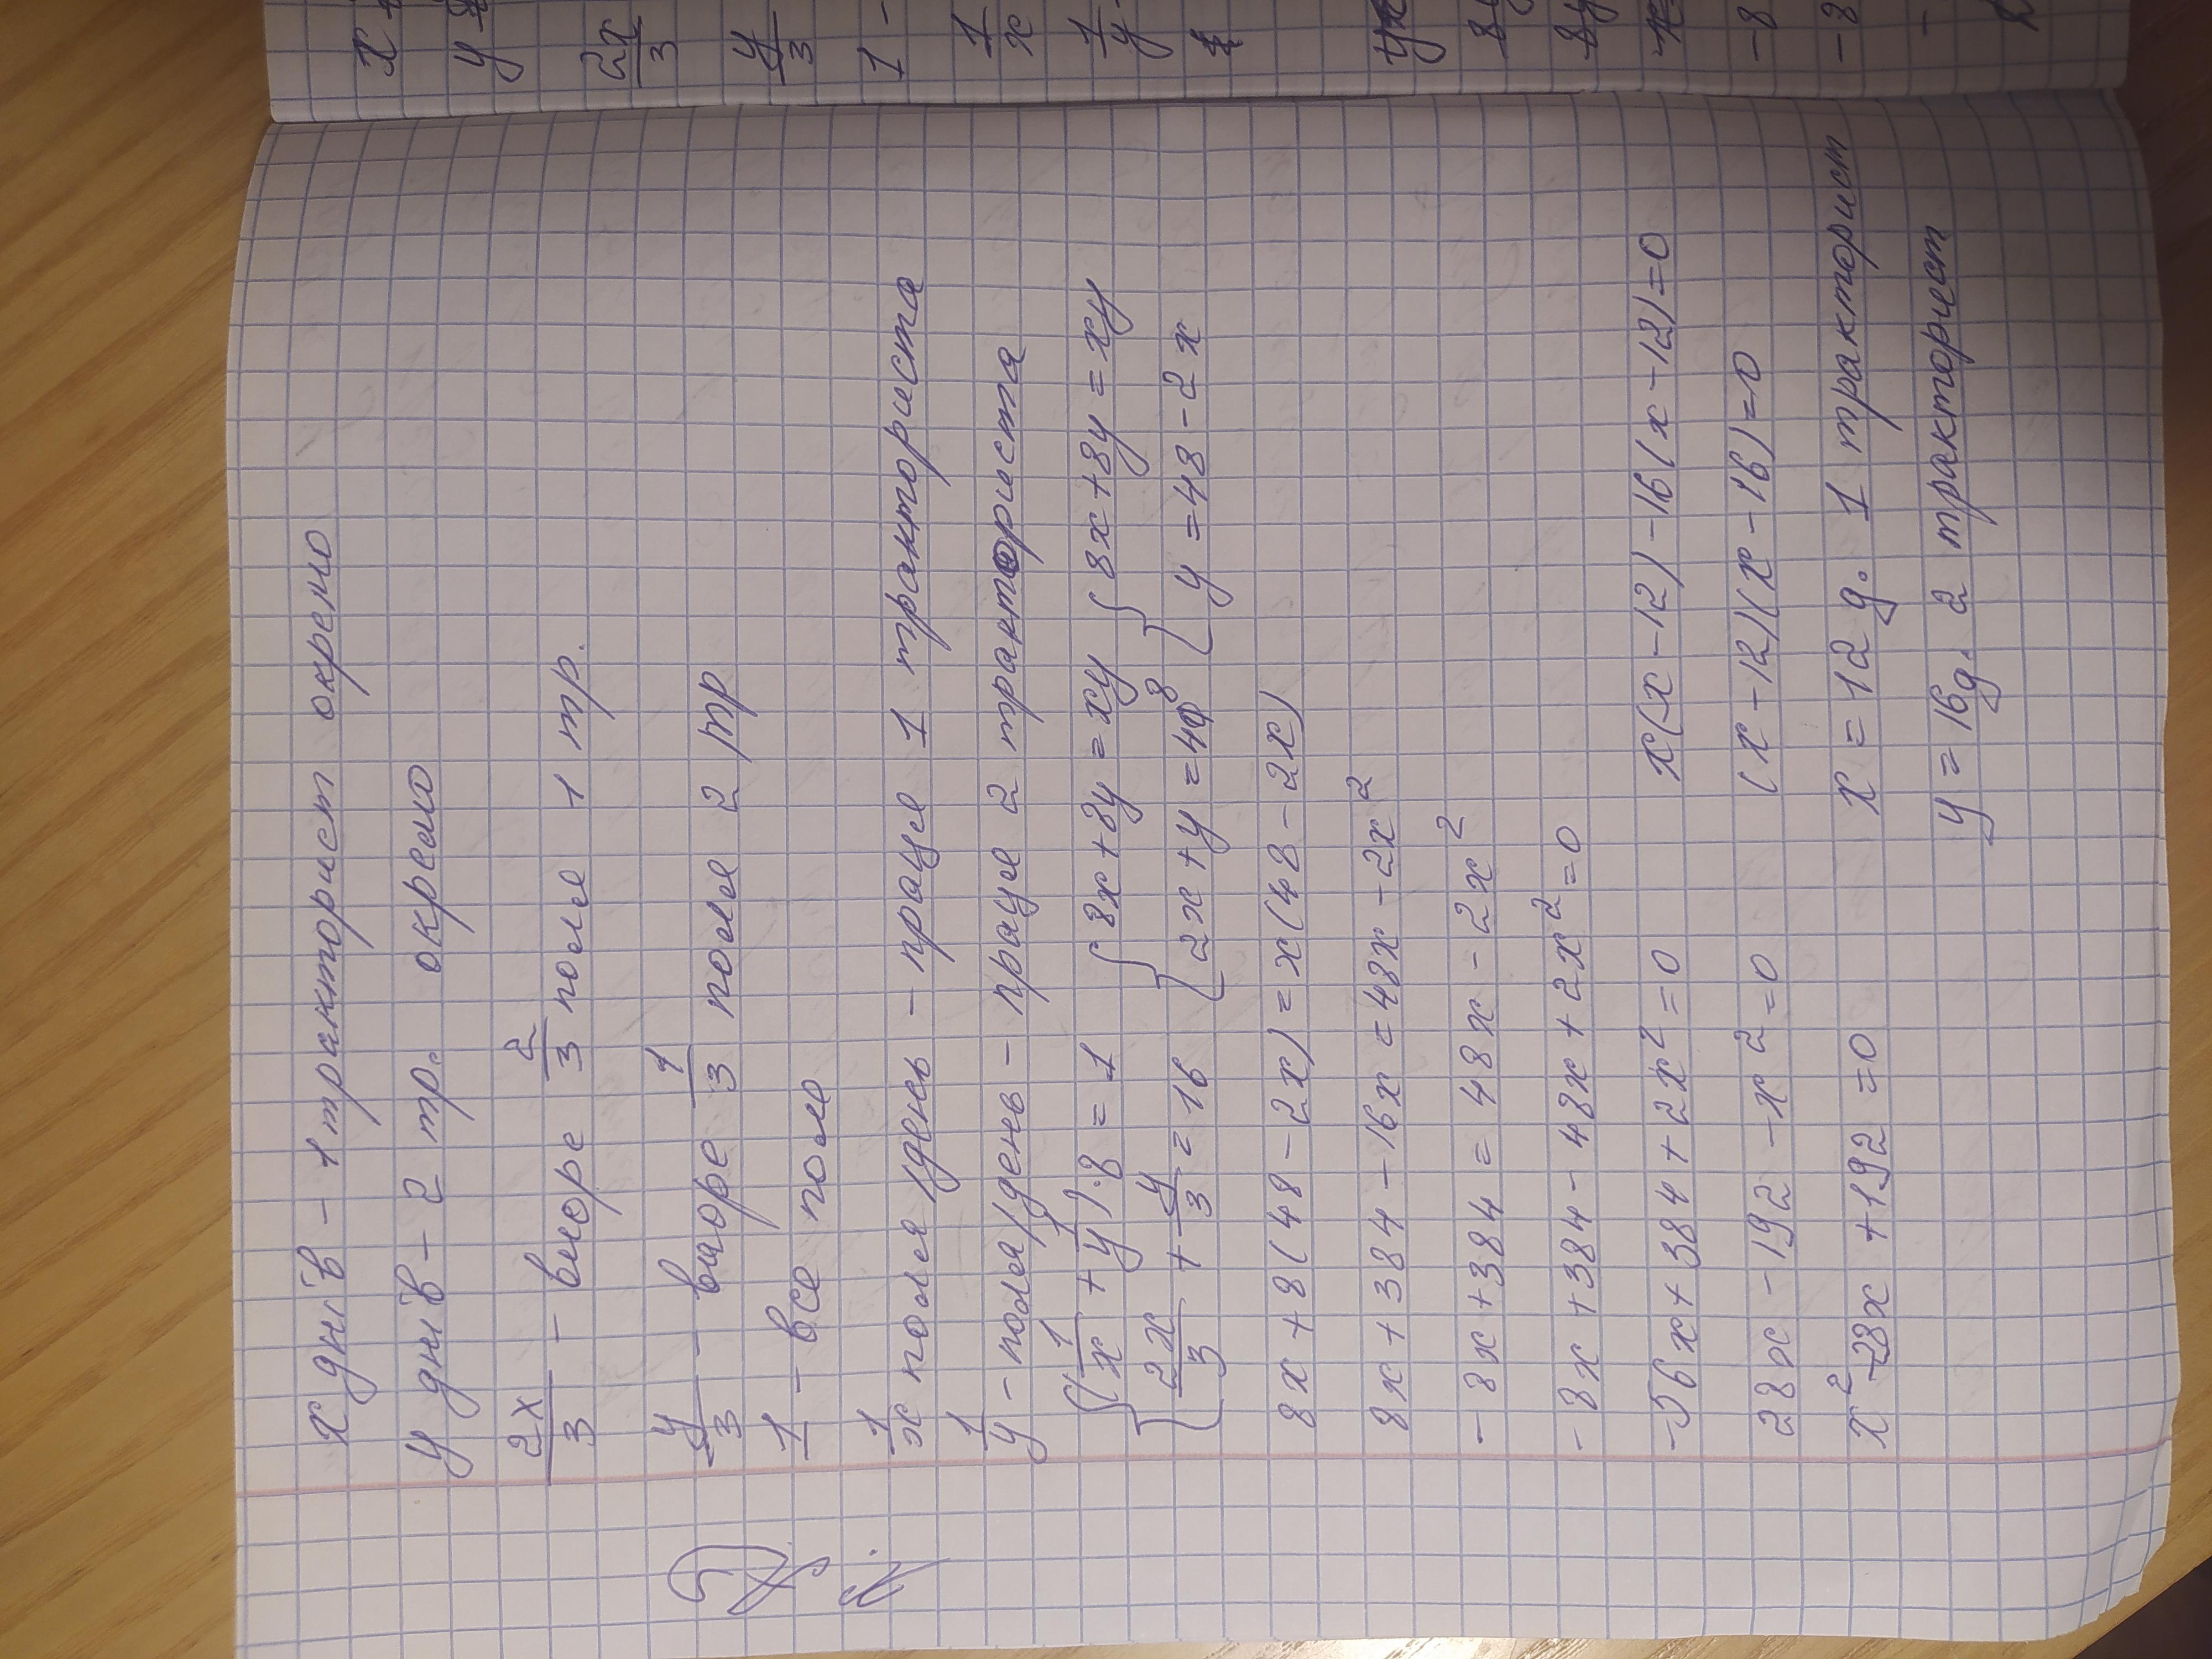 x днів - 1 тракторист окремо
y днів - 2 тр. окремо
2x/3 - виоре 2/3 поля 1 тр.
y/3 - виоре 1/3 поля 2 тр
1 - все поле
1/x поля/день - праця 1 тракториста
1/y - поля/день - праця 2 тракториста
{ (1/x + 1/y) · 8 = 1 { 8x + 8y = xy { 8x + 8y = xy
2x/3 + y/3 = 16 { 2x + y = 48 { y = 48 - 2x
8x + 8(48 - 2x) = x(48 - 2x)
8x + 384 - 16x = 48x - 2x²
- 8x + 384 = 48x - 2x²
- 8x + 384 - 48x + 2x² = 0
-56x + 384 + 2x² = 0
28x - 192 - x² = 0
x² - 28x + 192 = 0
x(x - 12) - 16(x - 12) = 0
(x - 12)(x - 16) = 0
x = 12 д. 1 тракторист
y = 16 д. 2 тракторист
x
y
2x/3
y/3
1 -
1/x
1/y